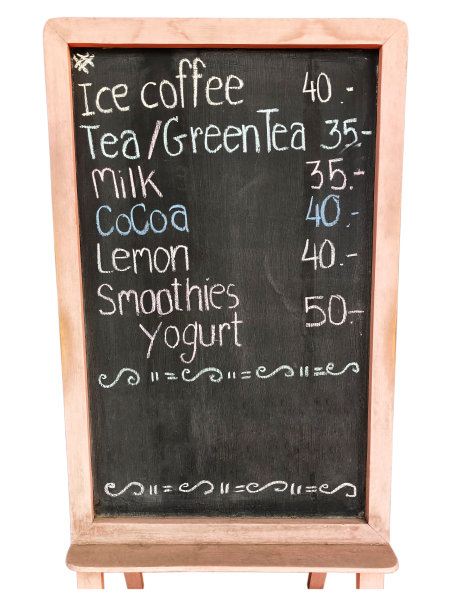 Ice coffee 40.-
Tea/GreenTea 35-
Milk 35.-
CoCoa 40.-
Lemon 40.-
Smoothies
Yogurt 50.-